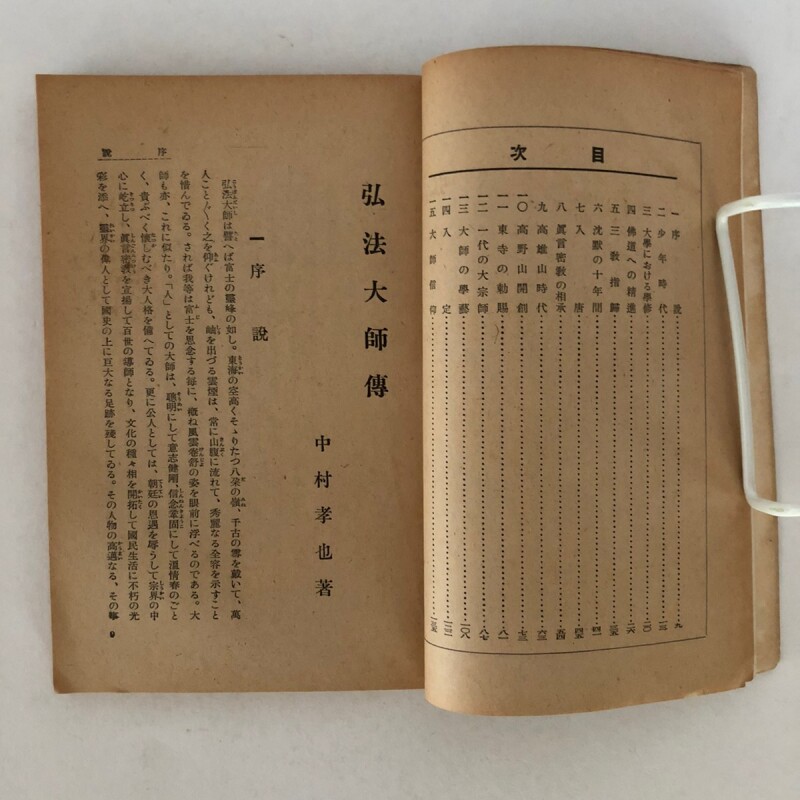 目次
一序説……九
二少年時代……一三
三大學における學修……二〇
四佛道への精進……二六
五三教指歸……三五
六沈默の十年間……四一
七入唐……四五
八眞言密教の相承……五四
九高雄山時代……六三
一〇高野山開創……七三
一一東寺の勅賜……八一
一二一代の大宗師……八七
一三大師の學藝……一〇八
一四入定
一五大師信仰
弘法大師傳
中村孝也著
一序説
弘法大師は譬へば富士の靈峰の如し。東海の空高くそゝりたつ八朶の嶺、千古の雪を戴いて、萬
人こと〴〵く之を仰ぐけれども、岫を出づる雲煙は、常に山腹に流れて、秀麗なる全容を示すこと
を惜んでゐる。されば我等は富士を思念する毎に、概ね風雲卷舒の姿を眼前に浮べるのである。大
師も亦、これに似たり。「人」としての大師は、聰明にして意志健剛、信念鞏固にして溫情春のごと
く、貴ぶべく懷しむべき大人格を備へてゐる。更に公人としては、朝廷の恩遇を辱うして宗界の中
心に屹立し、眞言密教を宣揚して百世の導師となり、文化の種々相を開拓して國民生活に不朽の光
彩を添へ、靈界の偉人として國史の上に巨大なる足跡を殘してゐる。その人物の高邁なる、その事
序説
9